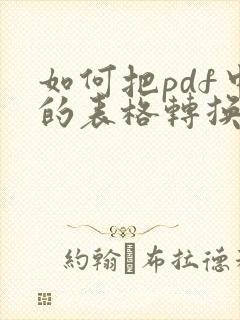 如何把pdf中
的表格轉換
約翰·布拉德